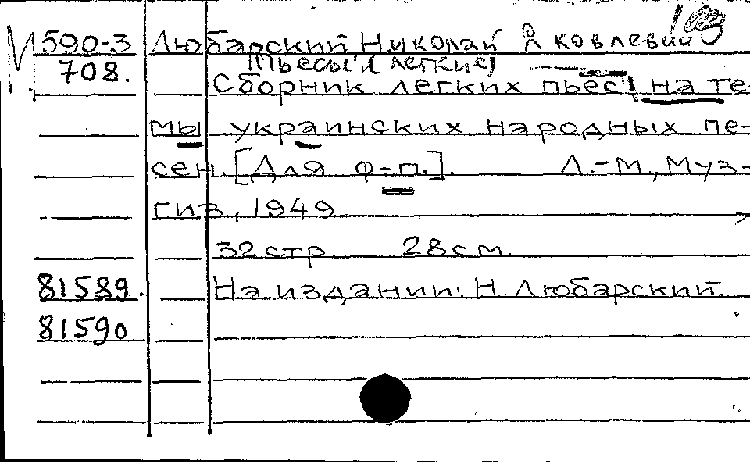 103
М 590-3 Любарский Николай Яковлевич
708. [Пьесы легкие]
Сборник легких пьес на те-
мы украинских народных пе-
сен. [Для ф-п.]. Л.-М., Муз-
гиз, 1949
32 стр 28 см.
81589. На издании: Н Любарский
81590